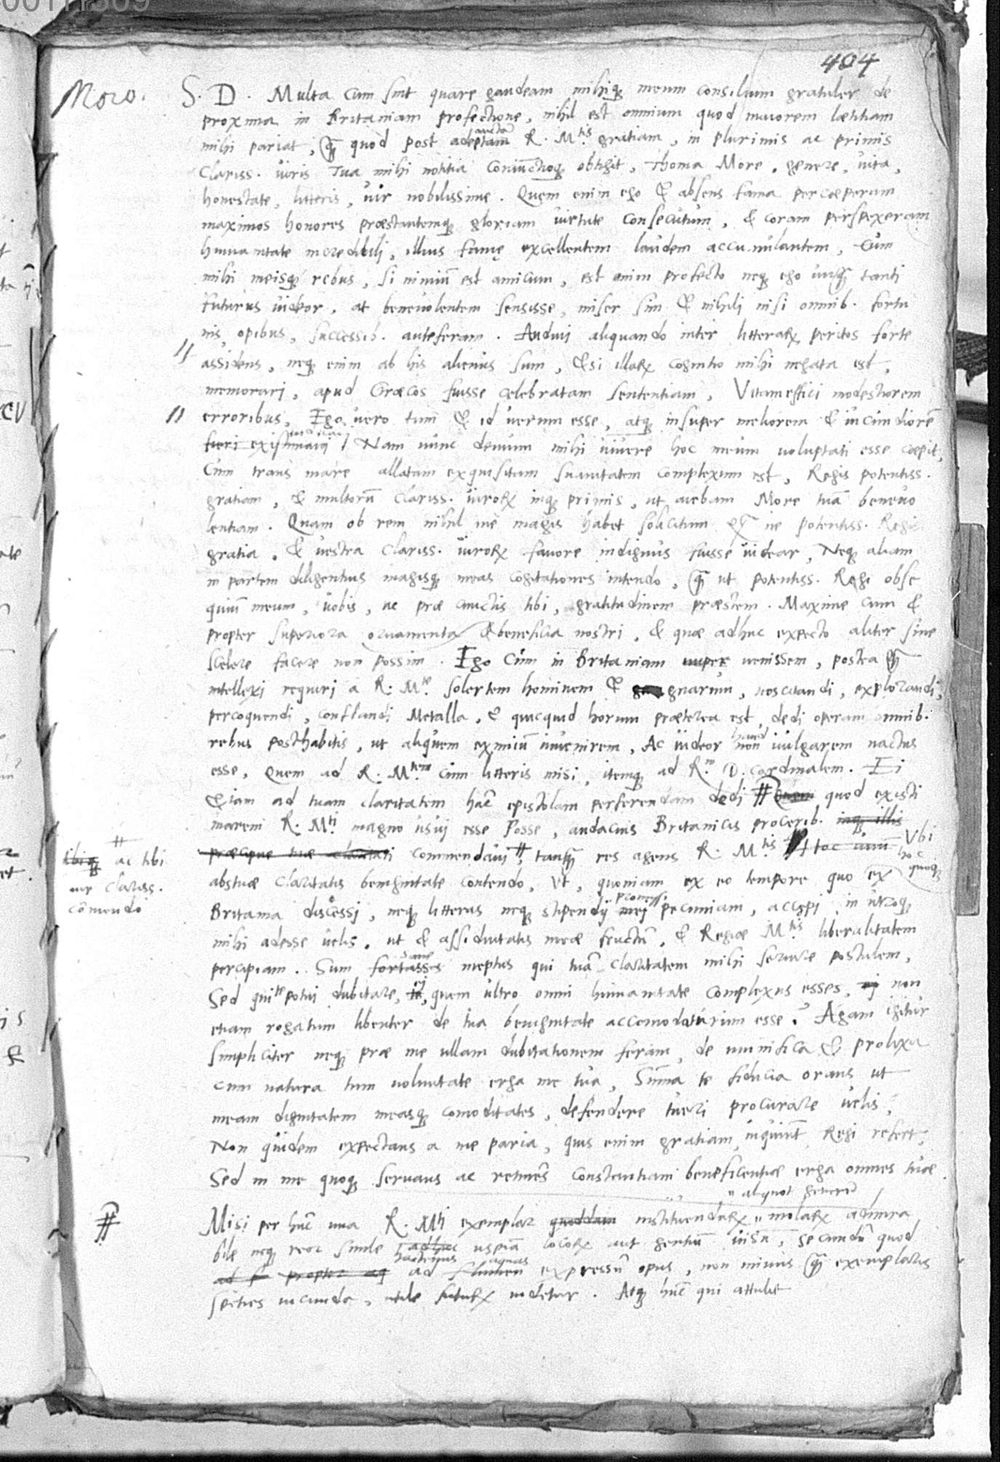 404
Moro. S. D. Multa cum sint quare gaudeam mihiq; meum consilium gratuler de
proxima in Britaniam profectione, nihil est omnium quod maiorem lætitiam
mihi pariat, quod post adeptam R. M.tis gratiam, in plurimis ac primis
Clariss. viris Tua mihi notitia obtigit, Thoma More, genere, vita,
honestate, litteris, vir nobilissime. Quem enim ego & absens fama perceperam
maximos honores præstantemq; gloriam virtute consecutum, & coram perspexeram
humanitate incredibili, illius famę excellentem laudem accumulantem, Cum
mihi meisq; rebus, si nimiū est amicum, est enim profecto neq; ego tanti
futurus videor, at benevolentem sensisse, miser sim & nihili nisi omnib. fortu
nis, opibus, successib. anteferam. Audivi aliquando inter litteraꝝ peritos forte
assidens, neq; enim ab his alienus sum, etsi illaꝝ cognitio mihi negata est,
memorari, apud Græcos fuisse celebratam sententiam, Vitam effici modestiorem
erroribus, Ego vero tum & id verum esse, atq; insuper meliorem & iucundiorē
fieri Nam nunc demum mihi vivere hoc meum voluptati esse coepit,
Cum trans mare allatam exquisitam suavitatem complexum est, Regis potentiss.
gratiam, & multorū clariss. viroꝝ inq; primis, ut avebam More tuā benevo
lentiam. Quam ob rem nihil me magis habet solicitum ne potentiss. Regis
gratia, & vestra clariss. viroꝝ favore indignus fuisse videar, Neq; aliam
in partem diligentius magisq; meas cogitationes intendo, ut potentiss. Regi obse
quium meum, vobis, ac præ cunctis tibi, gratitudinem præstem. Maxime cum &
propter superiora ornamenta & beneficia nostri, & quæ adhuc expecto aliter sine
scelere facere non possim. Ego cum in Britaniam nuper venissem, postea
intellexi requiri a R. M.te solertem hominem & gnarum, noscitandi, explorandi,
percoquendi, conflandi Metalla, & quicquid horum præterea est, dedi operam omnib.
rebus posthabitis, ut aliquem eximiū invenirem, Ac videor non vulgarem nactus
esse, Quem ad R. M.tem cum litteris misi, itemq; ad R.m D. Cardinalem. Ei
Etiam ad tuam claritatem hāc epistolam perferendam dedi # quod existi
marem R. M.ti magno usui esse posse, audacius Britanicis procerib. inq; illis
præcipue tuæ commendavi # tanq̃ res agens R. M.tis Ubi
# ac tibi
vir clariss.
cōmendo
hoc
quoq;
abstuæ claritatis benignitate contendo, Ut, quoniam ex eo tempore quo ex
Britania discessi, neq; litteras neq; stipendij pecuniam, accepi, in utroq;
mihi adesse velis, ut & assiduitatis meæ fructū, & Regiæ M.tis liberalitatem
percipiam. Sum fortasses ineptus qui tuā claritatem mihi servire postulem,
Sed qui potui dubitare, quem ultro omni humanitate complexus esses, non
etiam rogatum libenter de tua benignitate accomodaturum esse? Agam igitur
simpliciter neq; præ me ullam dubitationem feram, de munifica & prolixa
cum natura tum voluntate erga me tua, Summa te fiducia orans ut
meam dignitatem measq; comoditates, defendere tueri procurare velis,
Non quidem expectans a me paria, quis enim gratiam, inquiunt, Regi refert,
Sed in me quoq; servans ac retinens constantiam beneficentiæ erga omnes tuæ
aliquot generū
# Misi per hūc una R. M.ti exemplar quoddam instituendaꝝ molaꝝ admira
bile neq; reor simile adhuc uspiā locoꝝ aut gentiū visū, secundū quod
hactenus aquas
ad f propter aq ad flumen expressū opus, non minus exemplaris
species iucunda, utile futuꝝ videtur. Atq; hūc qui attulit